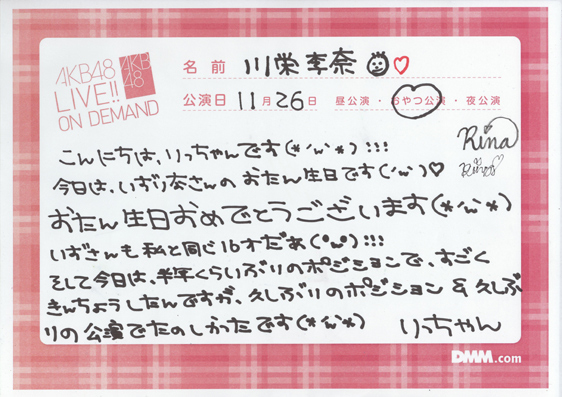 AKB48
LIVE!!
ON DEMAND
AKB
48
名前 川栄李奈 ♡
公演日 11月26日 昼公演・おやつ公演・夜公演
Rina
Rina♡
こんにちは、りっちゃんです(*´ω`*)!!!
今日は、いずりなさんのおたん生日です(´ω`)♡
おたん生日おめでとうございます(*´ω`*)
いずさんも私と同じ16才だぁ(°ω°)!!!
そして今日は、半年くらいぶりのポジションで、すごく
きんちょうしたんですが、久しぶりのポジション & 久しぶ
りの公演でたのしかったです(*´ω`*) りっちゃん
DMM.com